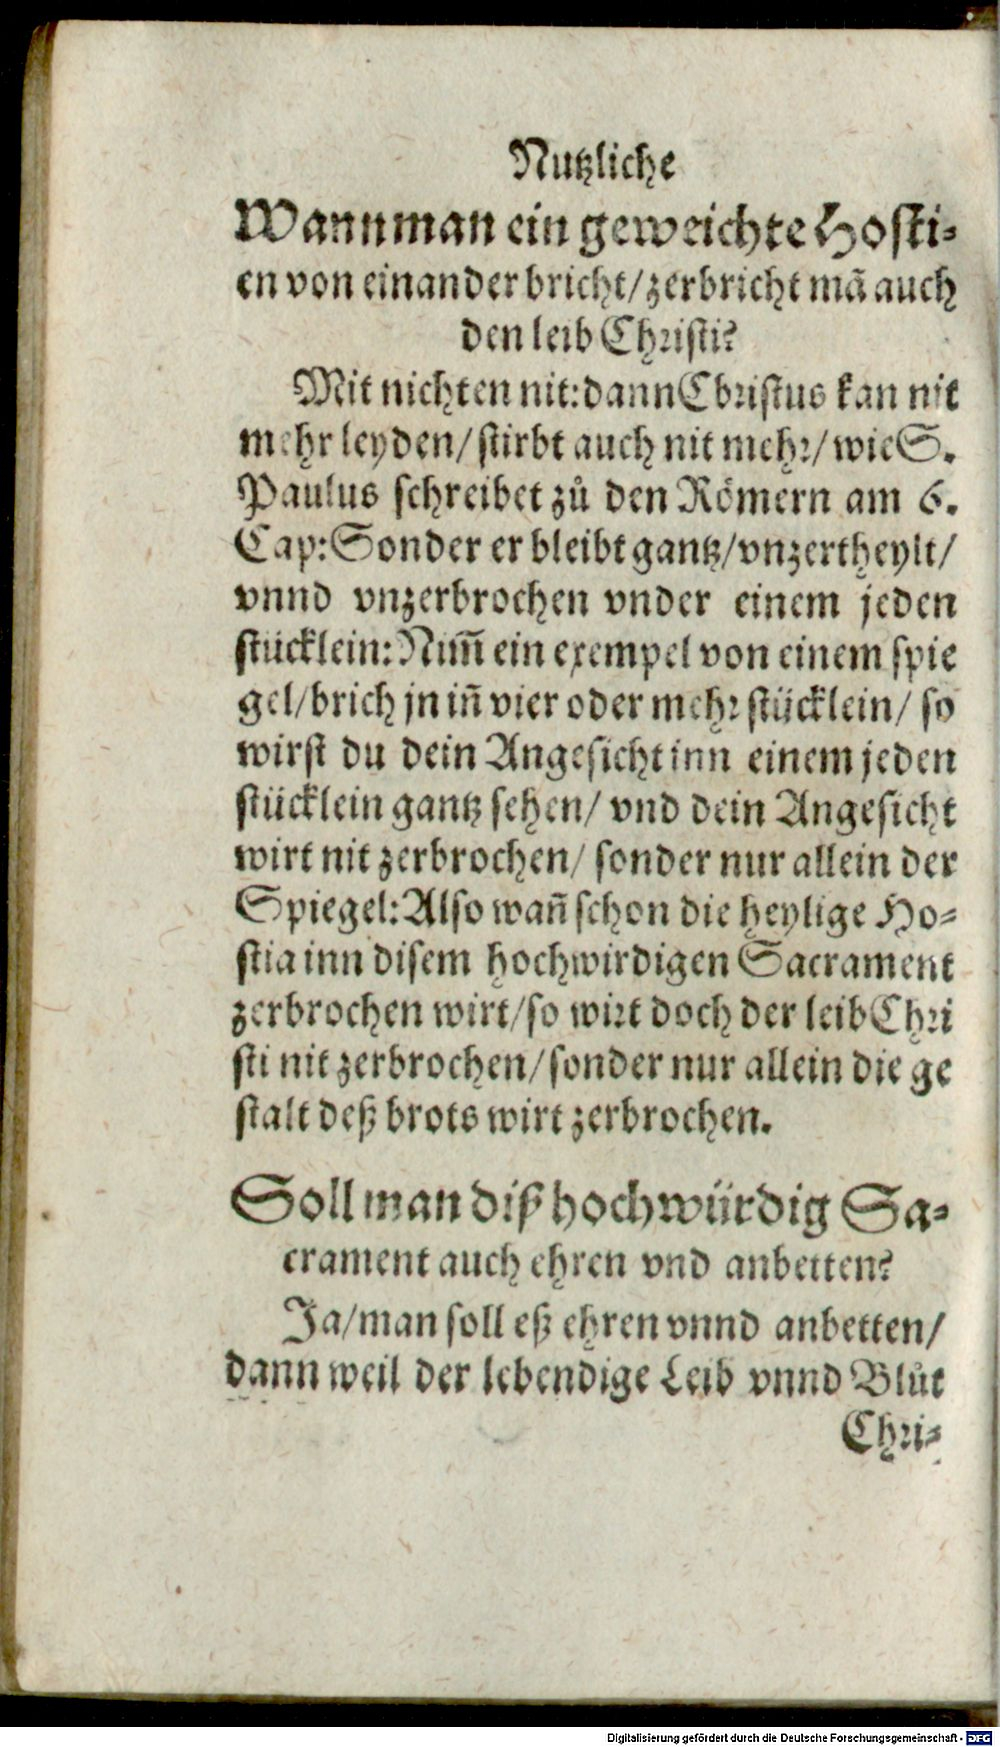 Nutzliche
Wann man ein geweichte Hosti-
en von einander bricht/ zerbricht mã auch
den leib Christi?
Mit nichten nit: dann Christus kan nit
mehr leyden/ stirbt auch nit mehr/ wie S.
Paulus schreibet zů den Römern am 6.
Cap: Sonder er bleibt gantz/ vnzertheylt/
vnnd vnzerbrochen vnder einem jeden
stücklein: Nim̃ ein exempel von einem spie
gel/ brich jn iñ vier oder mehr stücklein/ so
wirst du dein Angesicht inn einem jeden
stücklein gantz sehen/ vnd dein Angesicht
wirt nit zerbrochen/ sonder nur allein der
Spiegel: Also wañ schon die heylige Ho-
stia inn disem hochwirdigen Sacrament
zerbrochen wirt/ so wirt doch der leib Chri
sti nit zerbrochen/ sonder nur allein die ge
stalt deß brots wirt zerbrochen.
Soll man diß hochwürdig Sa-
crament auch ehren vnd anbetten?
Ja/ man soll eß ehren vnnd anbetten/
dann weil der lebendige Leib vnnd Blůt
Chri-
Digitalisierung gefördert durch die Deutsche Forschungsgemeinschaft - DFG